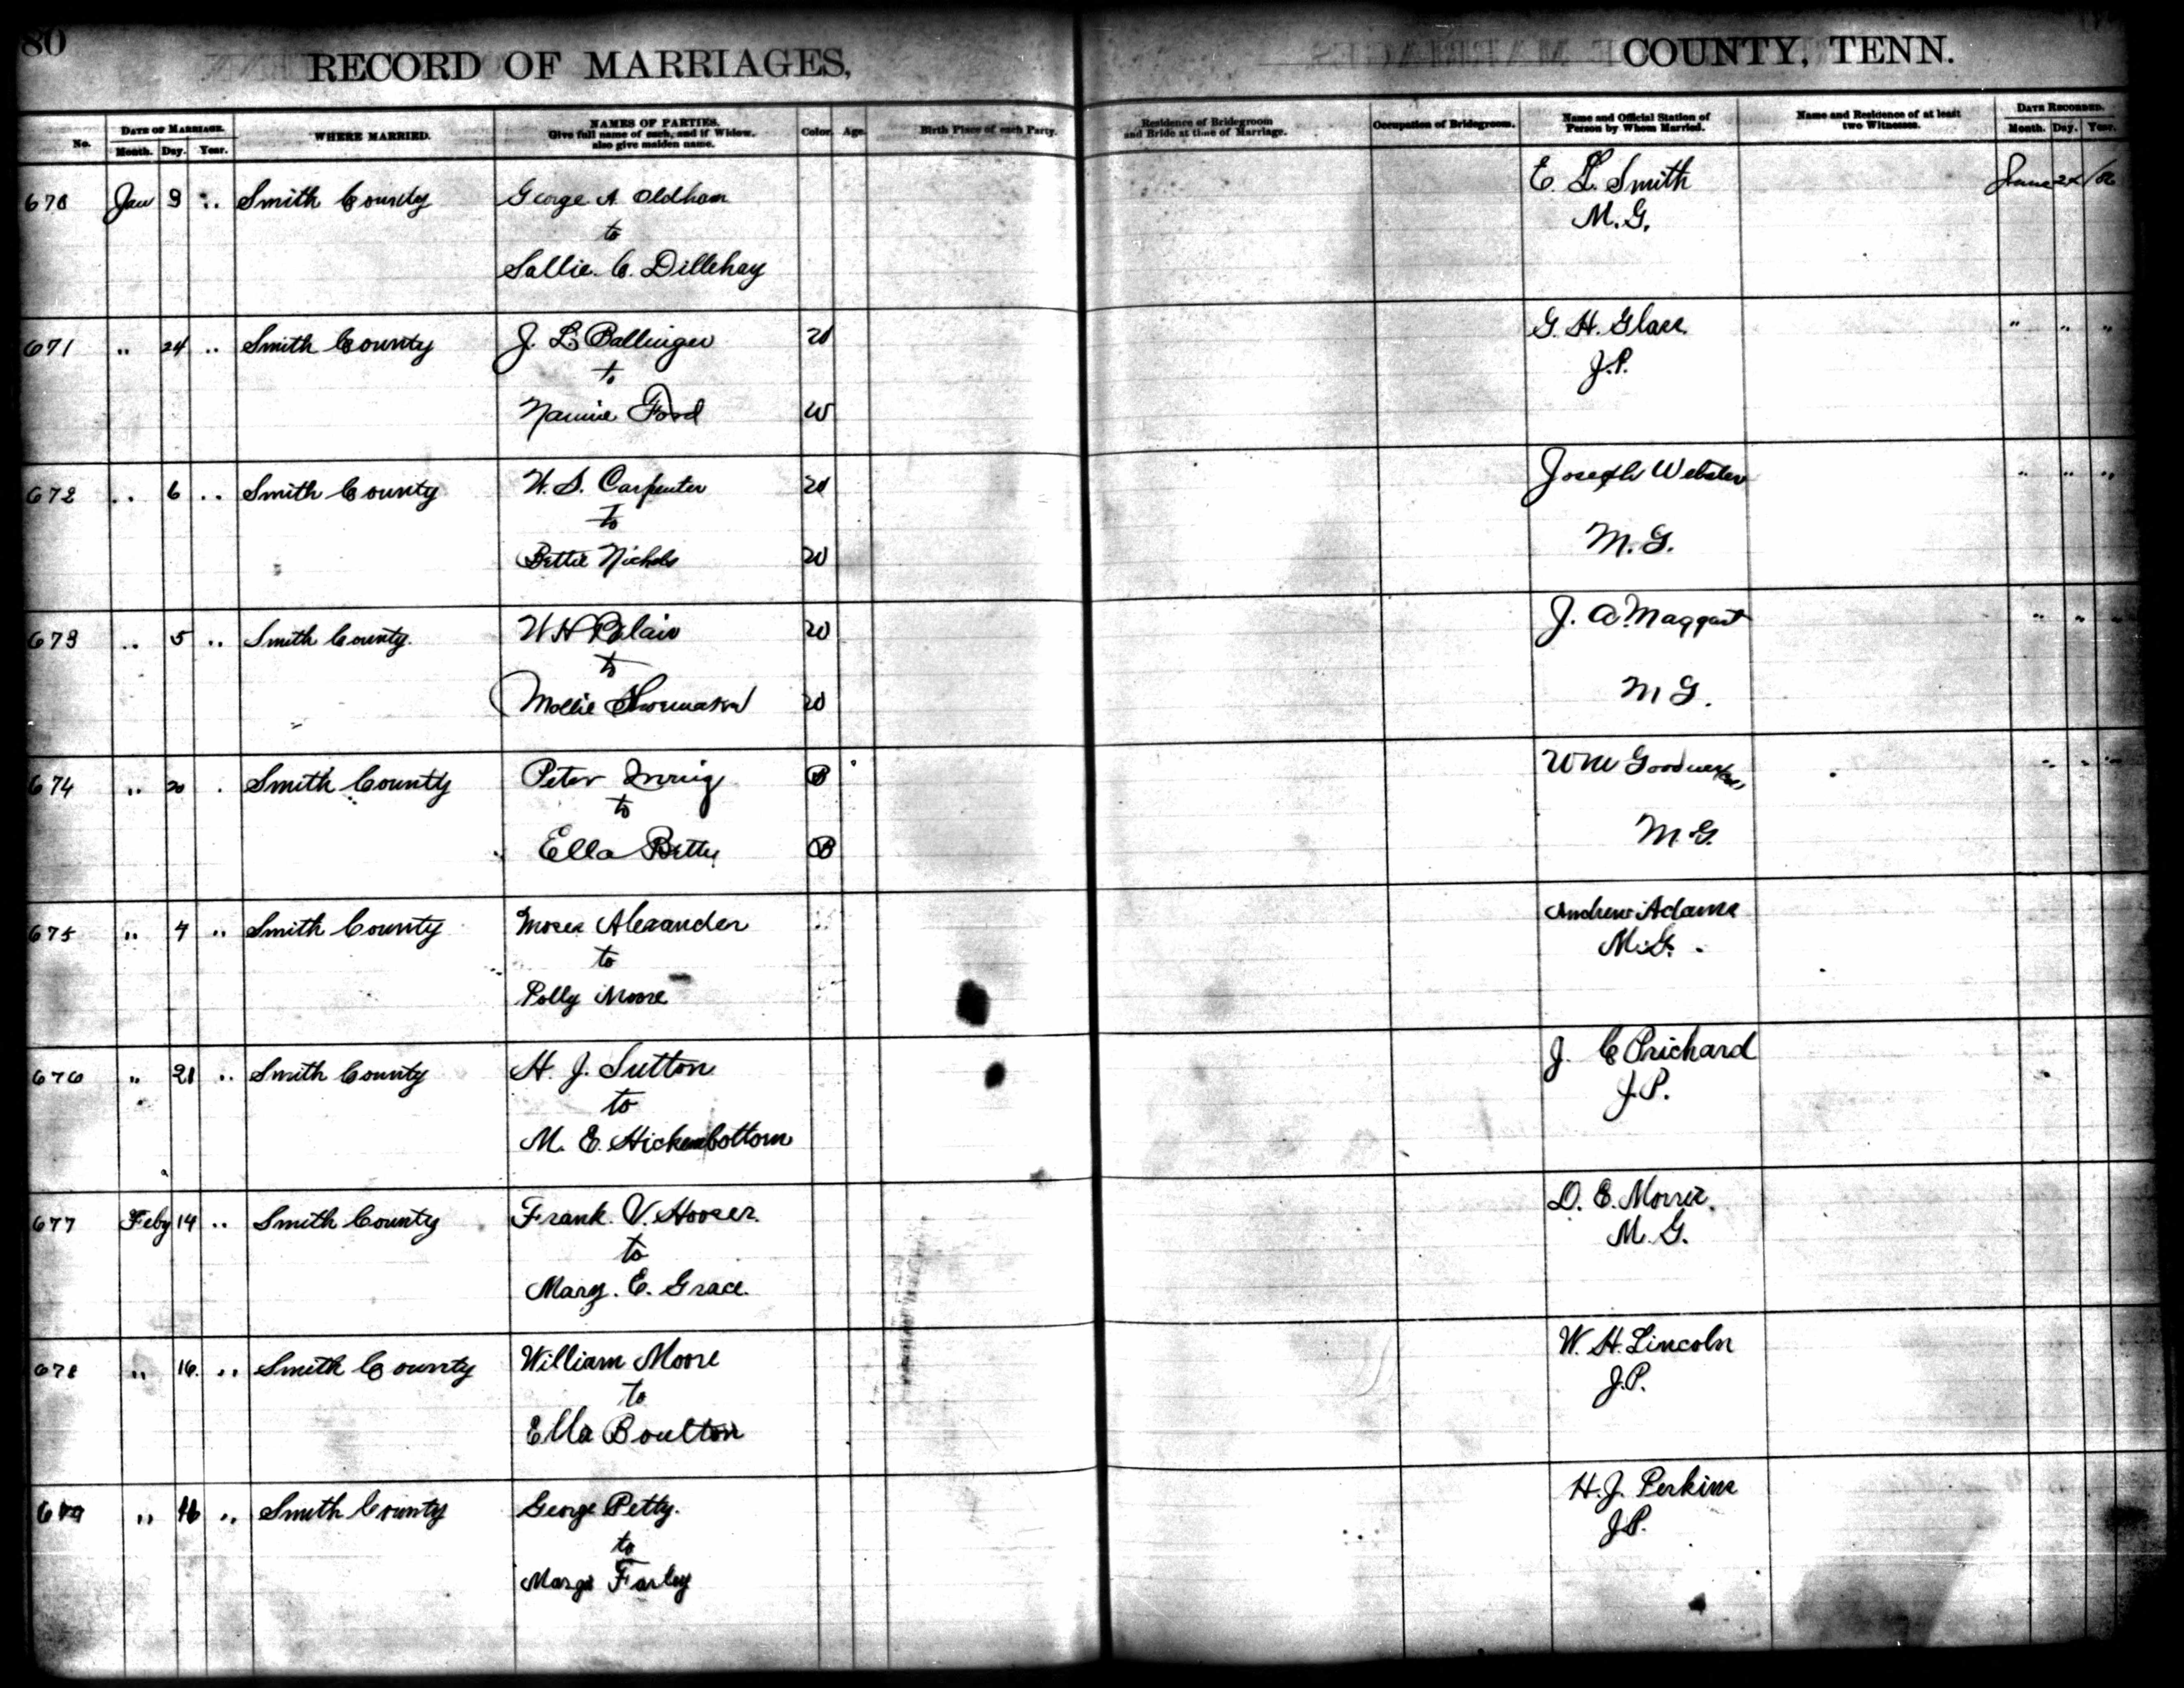 80
RECORD OF MARRIAGES, COUNTY, TENN.
No. DATE OF MARRIAGE. Month. Day. Year. WHERE MARRIED. NAMES OF PARTIES. Give full name of each, and if Widow, also give maiden name. Color. Age. Birth Place of each Party. Residence of Bridegroom and Bride at time of Marriage. Occupation of Bridegroom. Name and Official Station of Person by Whom Married. Name and Residence of at least two Witnesses. DATE RECORDED. Month. Day. Year.
670 Jan 9 " Smith County George A. Oldham E. L. Smith June
to M.G.
Sallie C. Dillehay
671 " 24 " Smith County J. L. Ballinger W G. H. Glass " " "
to J.P.
Nannie Ford W
672 " 6 " Smith County W. S. Carpenter W Joseph Webster " " "
to M.G.
Bettie Nichols W
673 " 5 " Smith County W H Blair W J. A. Maggart " " "
to M G.
Mollie W
674 " 20 " Smith County Peter B Wm " " "
to M.G.
Ella B
675 " 4 " Smith County Moses Alexander " Andrew Adams
to M.G.
Polly Moore "
676 " 21 " Smith County H. J. Sutton J. C Prichard
to J.P.
M. E. Hickenbottom
677 Feby 14 " Smith County Frank. V. Hooser. D. E. Morris.
to M.G.
Mary. E. Grace.
678 " 16. " Smith County William Moore W. H. Lincoln
to J.P.
Ella Boulton
679 " 16 " Smith County George Petty. H. J. Perkins
to J.P.
Margie Farley